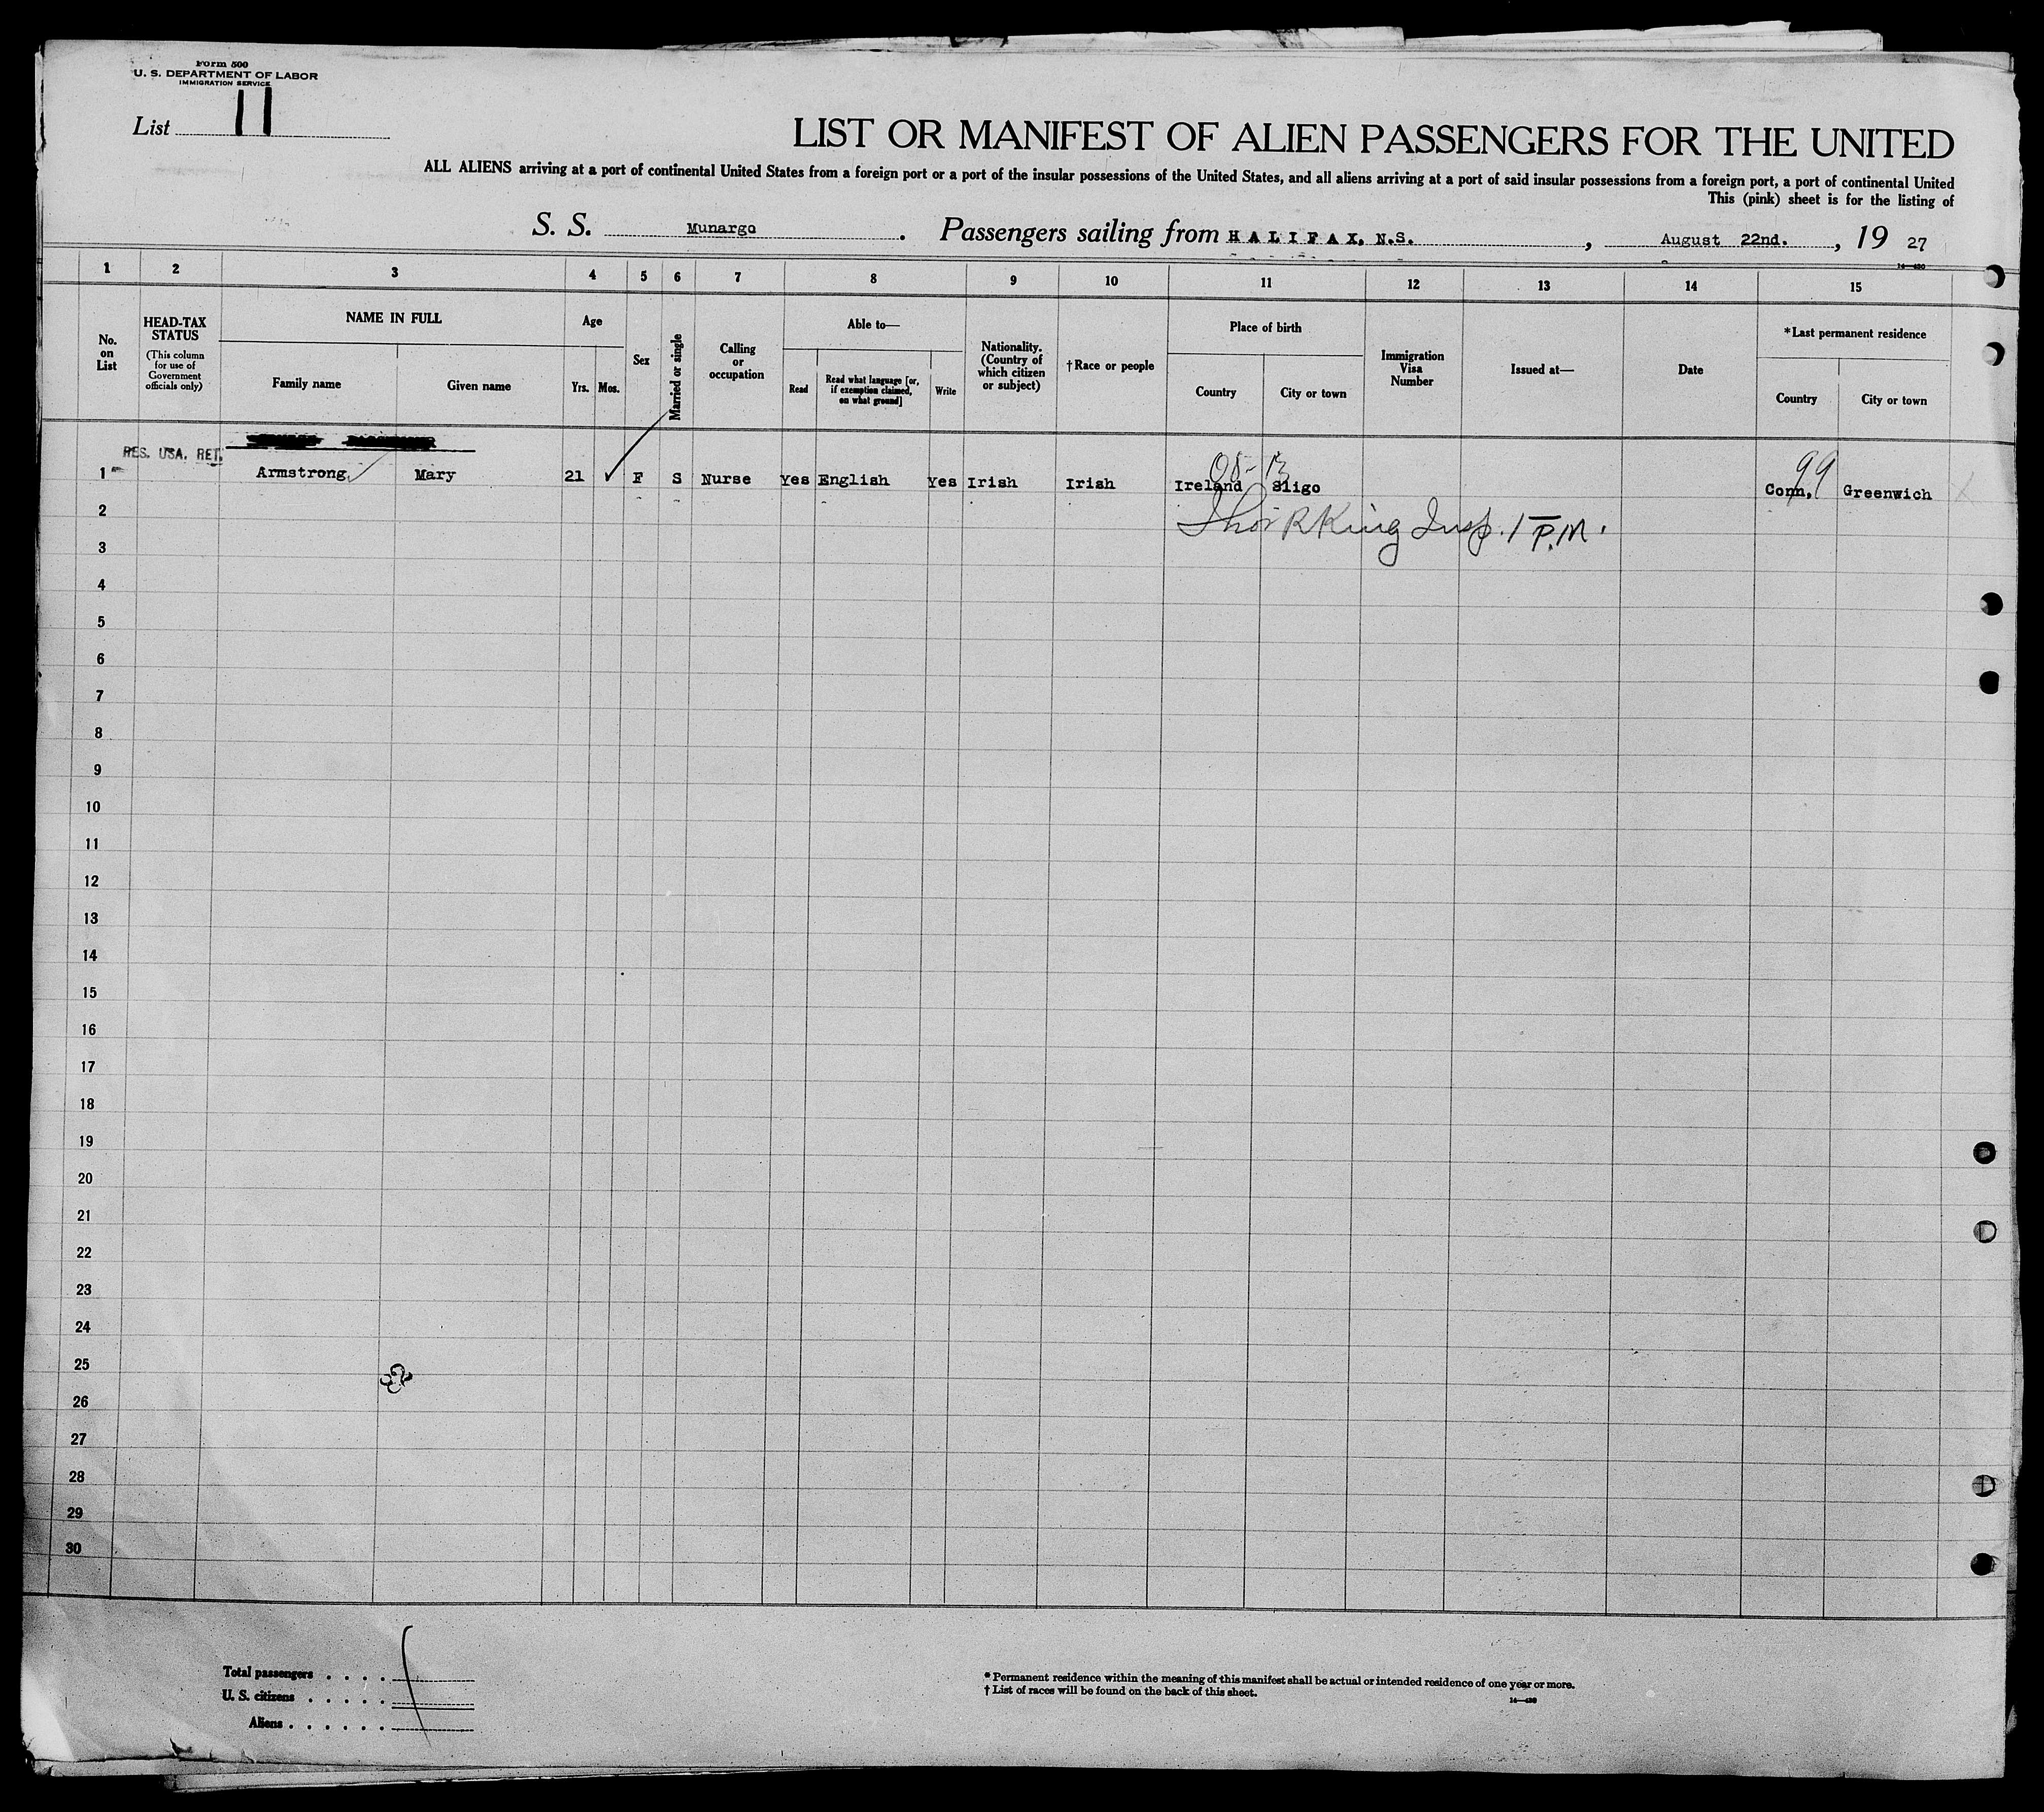 Form 500
U. S. DEPARTMENT OF LABOR
IMMIGRATION SERVICE
List 11
LIST OR MANIFEST OF ALIEN PASSENGERS FOR THE UNITED
ALL ALIENS arriving at a port of continental United States from a foreign port or a port of the insular possessions of the United States, and all aliens arriving at a port of said insular possessions from a foreign port, a port of continental United
This (pink) sheet is for the listing of
S. S. Munargo. Passengers sailing from HALIFAX, N.S., August 22nd., 19 27
14—430
1 2 3 4 5 6 7 8 9 10 11 12 13 14 15
No. on List
HEAD-TAX STATUS (This column for use of Government officials only)
NAME IN FULL
Family name Given name
Age
Yrs. Mos.
Sex
Married or single
Calling or occupation
Able to—
Read Read what language [or, if exemption claimed, on what ground] Write
Nationality. (Country of which citizen or subject)
†Race or people
Place of birth
Country City or town
Immigration Visa Number
Issued at—
Date
*Last permanent residence
Country City or town
RES. USA. RET.
08-13 99
1 Armstrong Mary 21 F S Nurse Yes English Yes Irish Irish Ireland Sligo Conn, Greenwich
2 R King Insp. 1 P.M.
3
4
5
6
7
8
9
10
11
12
13
14
15
16
17
18
19
20
21
22
23
24
25
26
27
28
29
30
Total passengers . . . .
U. S. citizens . . . . .
Aliens . . . . . .
* Permanent residence within the meaning of this manifest shall be actual or intended residence of one year or more.
† List of races will be found on the back of this sheet.
14—430